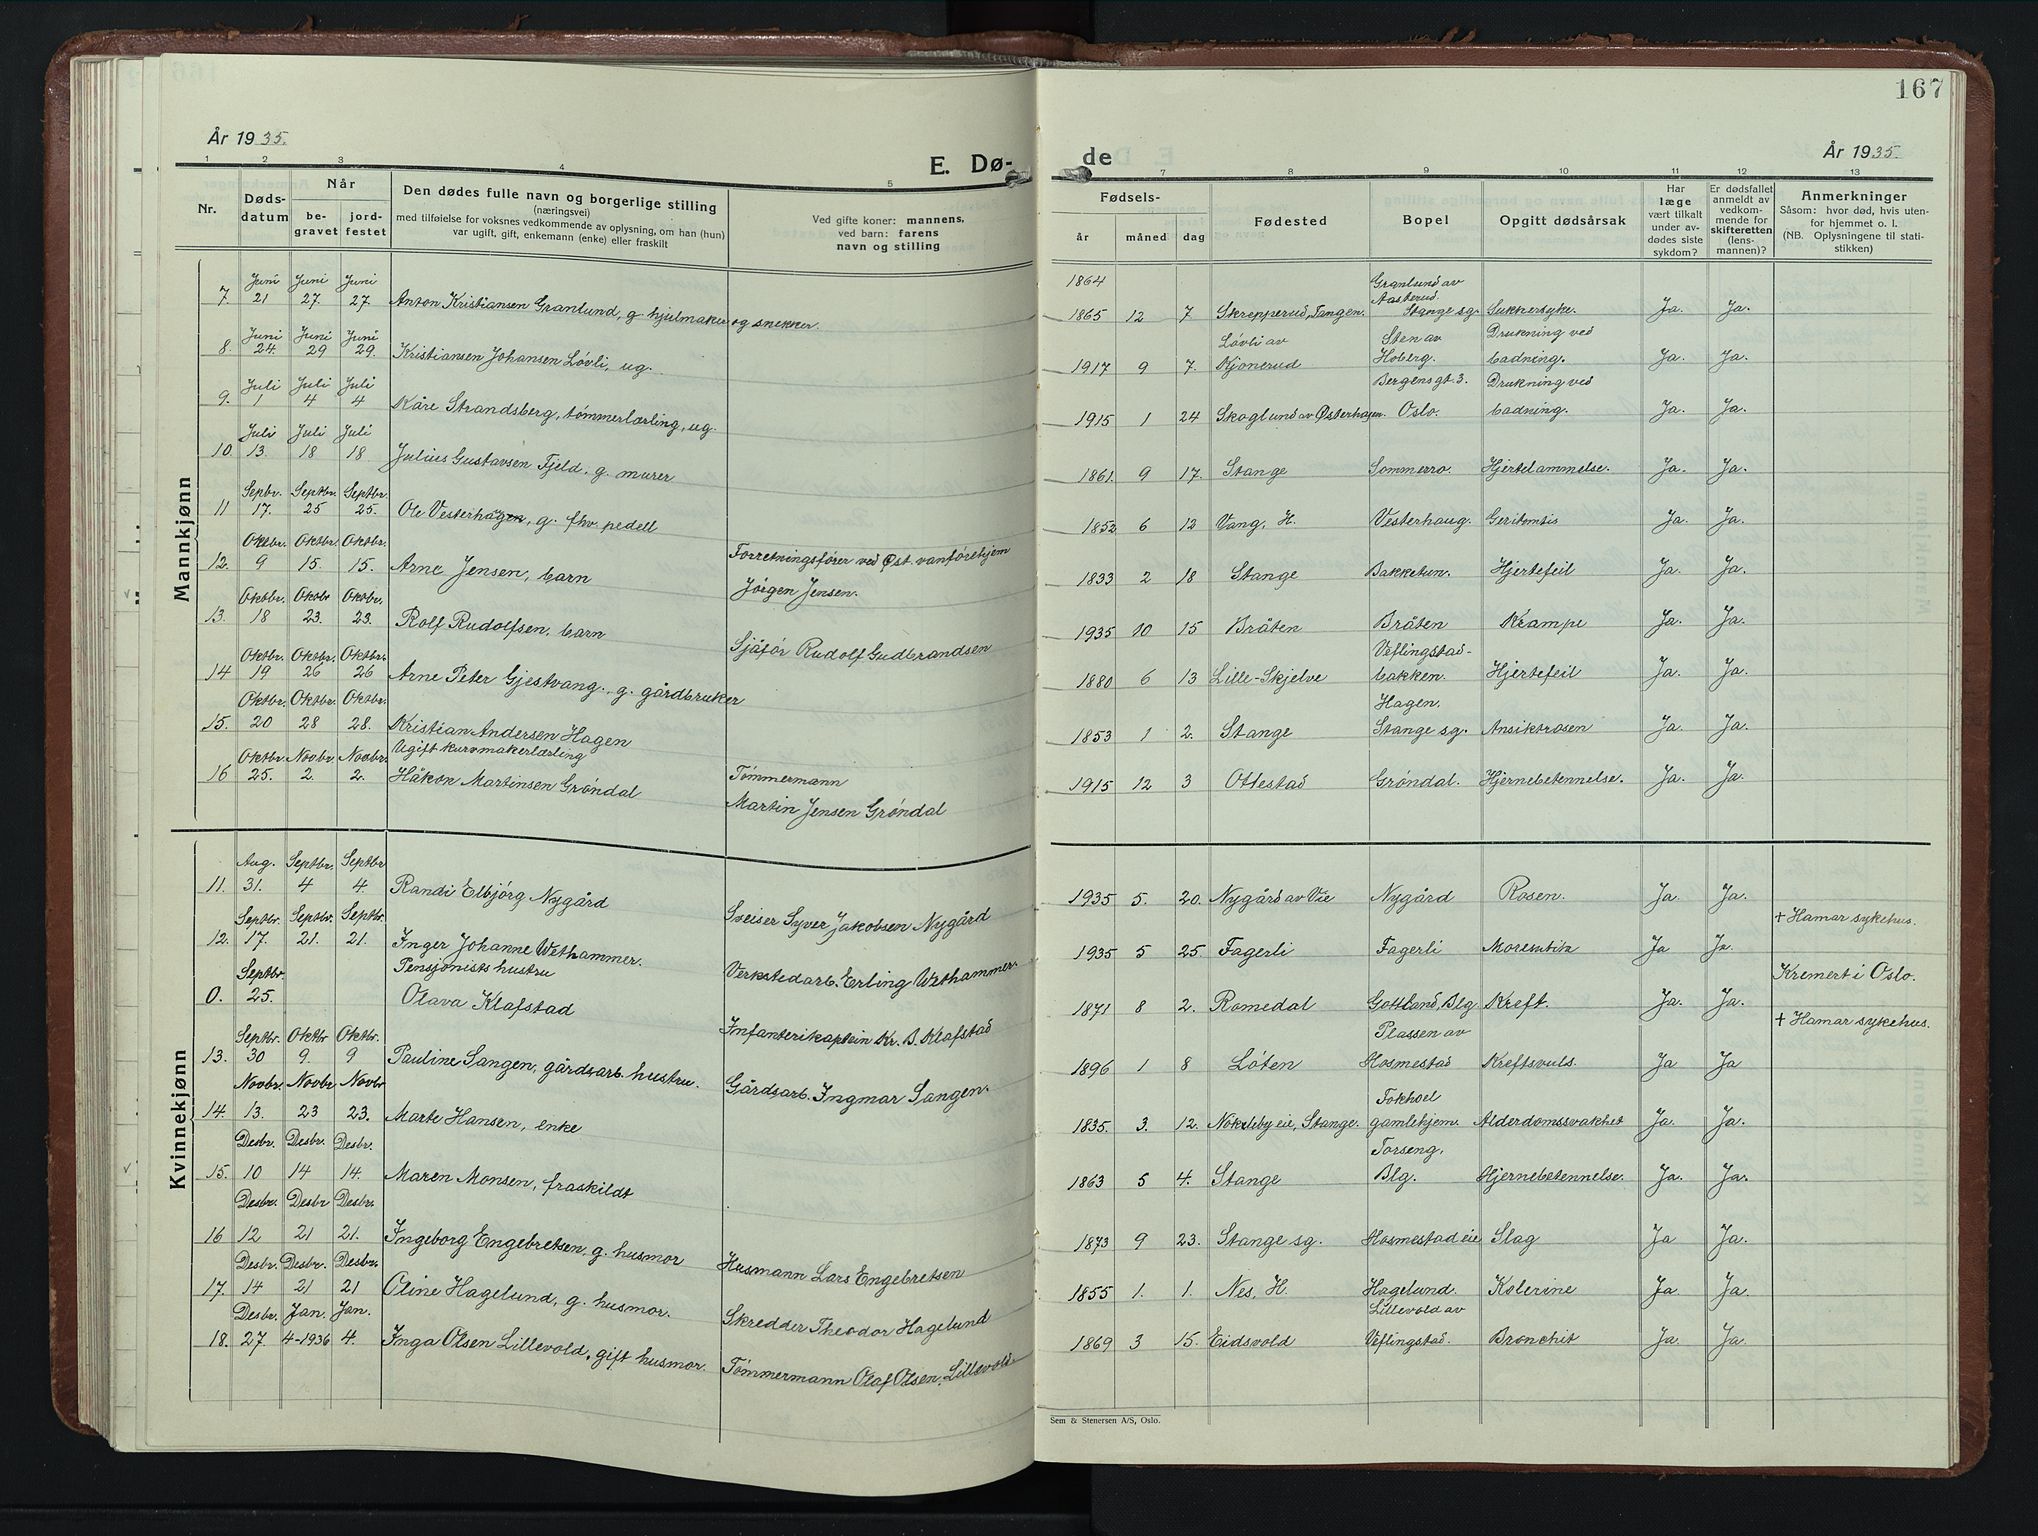 167
År 1935.
E. Dø-
de
År 1935.
1 2 3 4 5 7 8 9 10 11 12 13
Nr.
Døds-
datum
Når
be-
gravet
jord-
festet
Den dødes fulle navn og borgerlige stilling
(næringsvei)
med tilføielse for voksnes vedkommende av oplysning, om han (hun)
var ugift, gift, enkemann (enke) eller fraskilt
Ved gifte koner: mannens,
ved barn: farens
navn og stilling
Fødsels-
år måned dag
Fødested
Bopel
Opgitt dødsårsak
Har
læge
vært tilkalt
under av-
dødes siste
sykdom?
Er dødsfallet
anmeldt av
vedkom-
mende for
skifteretten
(lens-
mannen)?
Anmerkninger
Såsom: hvor død, hvis uten-
for hjemmet o. l.
(NB. Oplysningene til stati-
stikken)
Mannkjønn
7 Juni 21 Juni 27 Juni 27 Anton Kristiansen Granlund, g. hjulmaker og snekker. 1864 1865 12 7 Skrepperud, Tangen. Granlund av Aasterud. Stange sg. Sukkersyke. Ja. Ja.
8. Juni 24. Juni 29 Juni 29. Kristiansen Johansen Løvli, ug. 1917 9 7. Løvli av Kjonerud Sten av Hoberg. Drukning ved badning. Ja. Ja.
9. Juli 1 Juli 4 Juli 4 Kåre Strandsberg, tømmerlærling, ug. 1915 1 24 Skoglund av Østerhagen. Bergensgt. 3. Oslo. Drukning ved badning. Ja. Ja.
10 Juli 13. Juli 18 Juli 18 Julius Gustavsen Fjeld, g. murer 1861. 9 17. Stange Sommerro. Hjertelammelse. Ja. Ja.
11 Sepbr. 17. Septbr. 25 Septbr. 25. Ole Vesterhagen, g. fhv. pedell 1852 6 12 Vang, H. Vesterhaug. Ja. Ja.
12. Oktbr. 9 Oktbr. 15. Oktbr. 15. Arne Jensen, barn Forretningsfører ved Øst. vanførehjem Jørgen Jensen. 1833 2 18 Stange Bakketun. Hjertefeil Ja. Ja.
13. Oktbr. 18 Oktbr 23. Oktbr. 23. Rolf Rudolfsen, barn Sjåfør Rudolf Gudbrandsen 1935 10 15 Bråten Bråten Krampe Ja. Ja.
14 Oktbr. 19 Oktbr. 26 Oktbr. 26 Arne Peter Gjestvang, g. gårdbruker 1880 6 13 Lille-Skjelve Veflingstad-bakken. Hjertefeil Ja. Ja.
15. Oktbr. 20 Oktbr. 28 Oktbr. 28. Kristian Andersen Hagen 1853 1 2. Stange Hagen. Stange sg. Ansiktrosen Ja. Ja.
16 Oktbr. 25. Novbr. 2. Novbr. 2. Ugift kurvmakerlærling Håkon Martinsen Grøndal Tømmermann Martin Jensen Grøndal 1915 12 3 Ottestad Grøndal. Hjernebetennelse. Ja. Ja.
Kvinnekjønn
11. Aug. 31. Septbr. 4 Septbr 4. Randi Elbjørg Nygård Sveiser Syver Jakobsen Nygård 1935 5. 20. Nygård av Vie Nygård Rosen. Ja. Ja.
12. Septbr. 17. Septbr. 21. Septbr. 21. Inger Johanne Wethammer. Verkstedarb. Erling Wethammer. 1935 5 25. Fagerli Fagerli Ja Ja. † Hamar sykehus.
0. Septbr. 25. Pensjonists hustru Olava Klafstad Infanterikaptein Kr. B. Klafstad 1871 8 2. Romedal Gottland, Blg Kreft. Ja. Ja. Kremert i Oslo.
13. Septbr. 30 Oktbr 9. Oktbr. 9 Pauline Sangen, gårdsarb. hustru. Gårdsarb. Ingmar Sangen. 1896 1 8 Løten Plassen av Hosmestad Kreftsvuls. Ja Ja † Hamar sykehus.
14. Novbr. 13. Novbr 23 Novbr 23. Marte Hansen, enke 1835. 3. 12. Nokleby eie, Stange. Fokhoel gamlehjem. Alderdomssvakhet Ja. Ja.
15. Desbr. 10 Desbr. 14 Desbr. 14. Maren Monsen, fraskildt 1863 5 4. Stange Torseng, Blg. Hjernebetennelse. Ja. Ja.
16 Desbr. 12 Desbr 21 Desbr. 21. Ingeborg Engebretsen, g. husmor Husmann Lars Engebretsen 1873 9 23. Stange sg. Hosmestad eie Slag Ja Ja.
17. Desbr. 14 Desbr. 21 Desbr. 21 Oline Hagelund, g. husmor. Skredder Theodor Hagelund 1855 1. 1. Nes. H. Hagelund. Kolerine Ja Ja.
18. Desbr. 27 Jan. 4-1936 Jan. 4. Inga Olsen Lillevold, gift husmor. Tømmermann Olaf Olsen Lillevold 1869 3 15. Eidsvold Lillevold av Veflingstad. Bronchit Ja. Ja.
Sem & Stenersen A/S, Oslo.